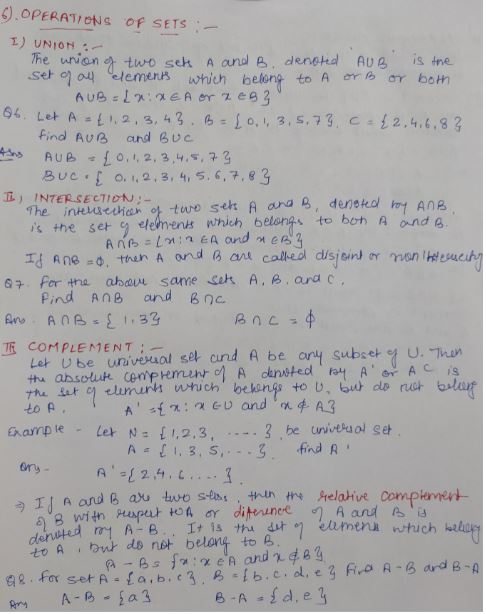 6). OPERATIONS OF SETS :-
I) UNION :-
The union of two sets A and B, denoted 'AUB' is the
set of all elements which belong to A or B or both
AUB = {x : x ∈ A or x ∈ B}
Q6. Let A = {1, 2, 3, 4}. B = {0, 1, 3, 5, 7}, C = {2, 4, 6, 8}
find AUB and BUC
Ans AUB = {0, 1, 2, 3, 4, 5, 7}
BUC = {0, 1, 2, 3, 4, 5, 6, 7, 8}
II) INTERSECTION :-
The intersection of two sets A and B, denoted by A∩B,
is the set of elements which belongs to both A and B.
A∩B = {x : x ∈ A and x ∈ B}
If A∩B = ϕ, then A and B are called disjoint or non
Q7. For the above same sets A, B, and C,
Find A∩B and B∩C
Ans. A∩B = {1, 3} B∩C = ϕ
III COMPLEMENT :-
Let U be universal set and A be any subset of U. Then
the absolute complement of A denoted by A' or A^C is
the set of elements which belongs to U, but do not belong
to A. A' = {x : x ∈ U and x ∉ A}
Example - Let N = {1, 2, 3, ----}, be universal set.
A = {1, 3, 5, ---} find A'
Ans- A' = {2, 4, 6 ....}
⇒ If A and B are two sets, then the relative complement
of B with respect to A or difference of A and B is
denoted by A-B. It is the set of elements which belong
to A, but do not belong to B.
A - B = {x : x ∈ A and x ∉ B}
Q8. For set A = {a, b, c}, B = {b, c, d, e} Find A-B and B-A
Ans A-B = {a} B-A = {d, e}